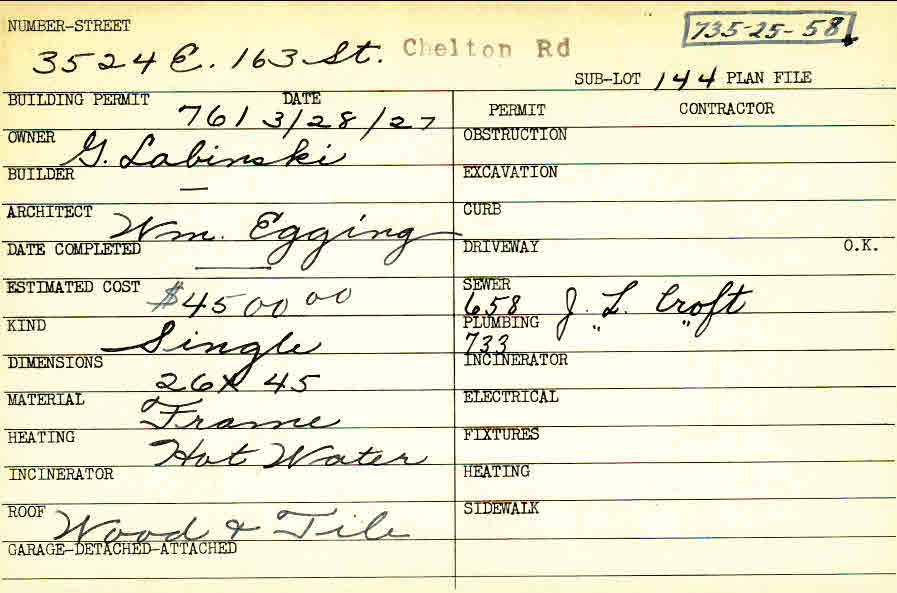 NUMBER-STREET
735-25-58
3524 E. 163 St. Chelton Rd
SUB-LOT 144 PLAN FILE
BUILDING PERMIT DATE
7613/28/27
PERMIT CONTRACTOR
OWNER G. Labinski
OBSTRUCTION
BUILDER —
EXCAVATION
ARCHITECT Wm. Egging
CURB
DATE COMPLETED —
DRIVEWAY O.K.
ESTIMATED COST $4500 00
SEWER
658 J. L. Croft
KIND Single
PLUMBING " "
733
DIMENSIONS 26 x 45
INCINERATOR
MATERIAL Frame
ELECTRICAL
HEATING Hot Water
FIXTURES
INCINERATOR
HEATING
ROOF Wood & Tile
SIDEWALK
GARAGE-DETACHED-ATTACHED